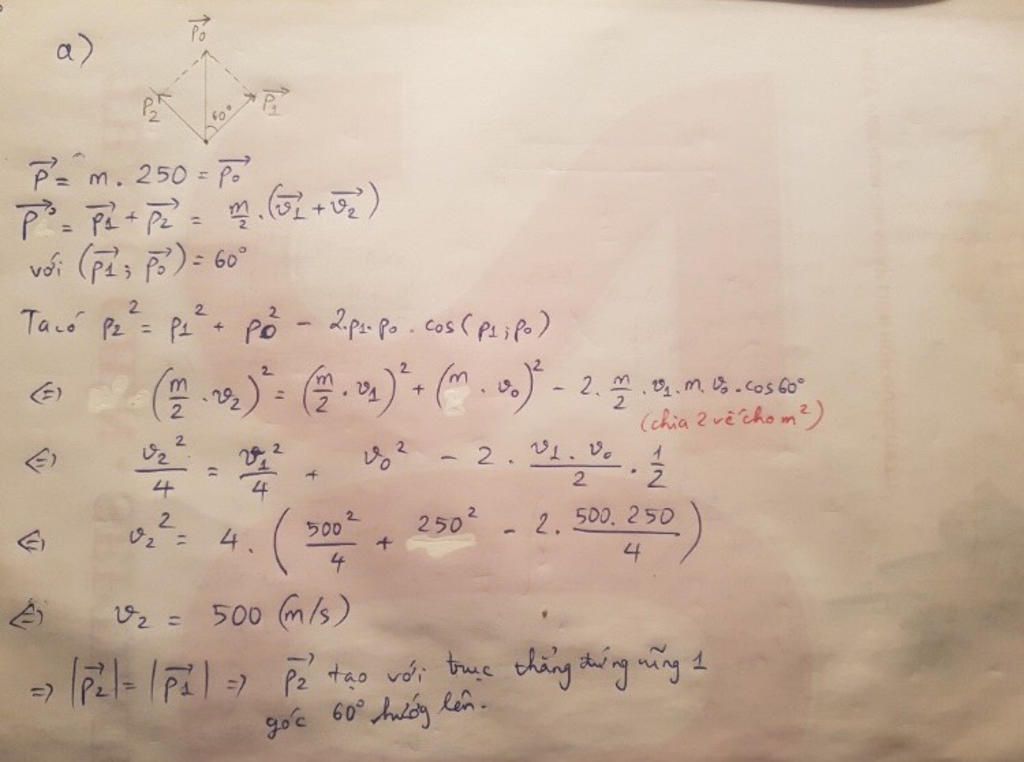 a)
P₀→
P₂
60°
P₁→
P→ = m . 250 = P₀→
P→ = P₁→ + P₂→ = m/2 . (v₁→ + v₂→)
với (p₁→ ; p₀→) = 60°
Ta có p₂² = p₁² + p₀² - 2.p₁.p₀ . cos(p₁ ; p₀)
⇔ (m/2 . v₂)² = (m/2 . v₁)² + (m . v₀)² - 2. m/2 . v₁. m. v₀. cos60°
(chia 2 vế cho m²)
⇔ v₂²/4 = v₁²/4 + v₀² - 2 . v₁ . v₀/2 . 1/2
⇔ v₂² = 4 . (500²/4 + 250² - 2. 500. 250/4)
⇔ v₂ = 500 (m/s)
⇒ |p₂→| = |p₁→| ⇒ p₂→ tạo với trục thẳng đứng cũng 1
góc 60° hướng lên.